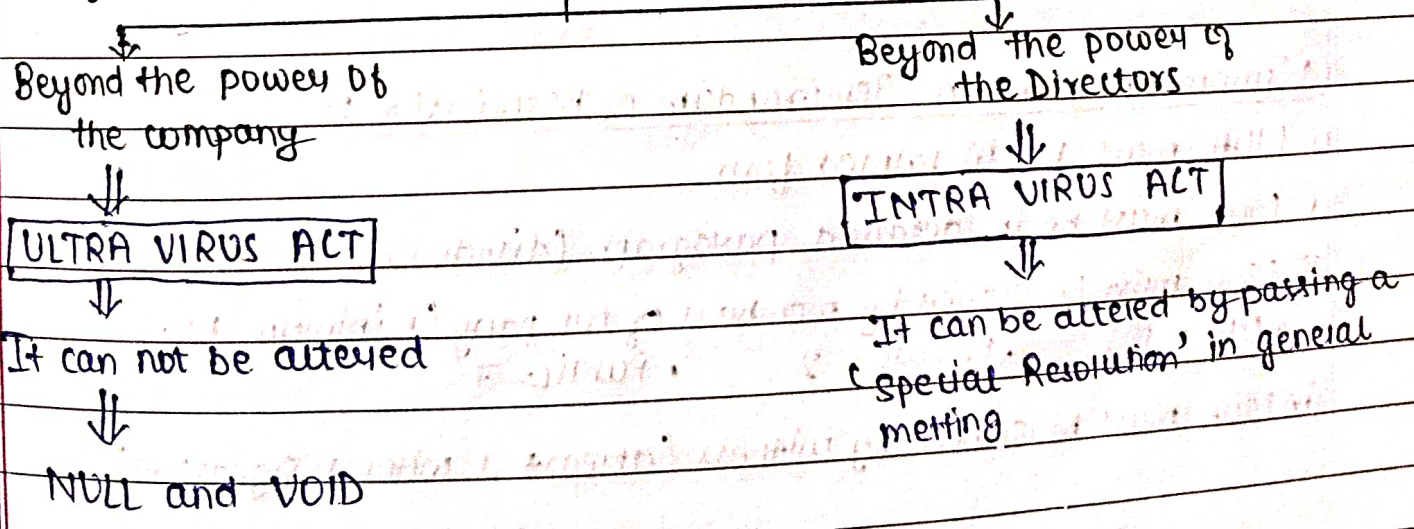 Beyond the power of
the company
ULTRA VIRUS ACT
It can not be altered
NULL and VOID
Beyond the power of
the Directors
INTRA VIRUS ACT
It can be altered by passing a
'special Resolution' in general
metting